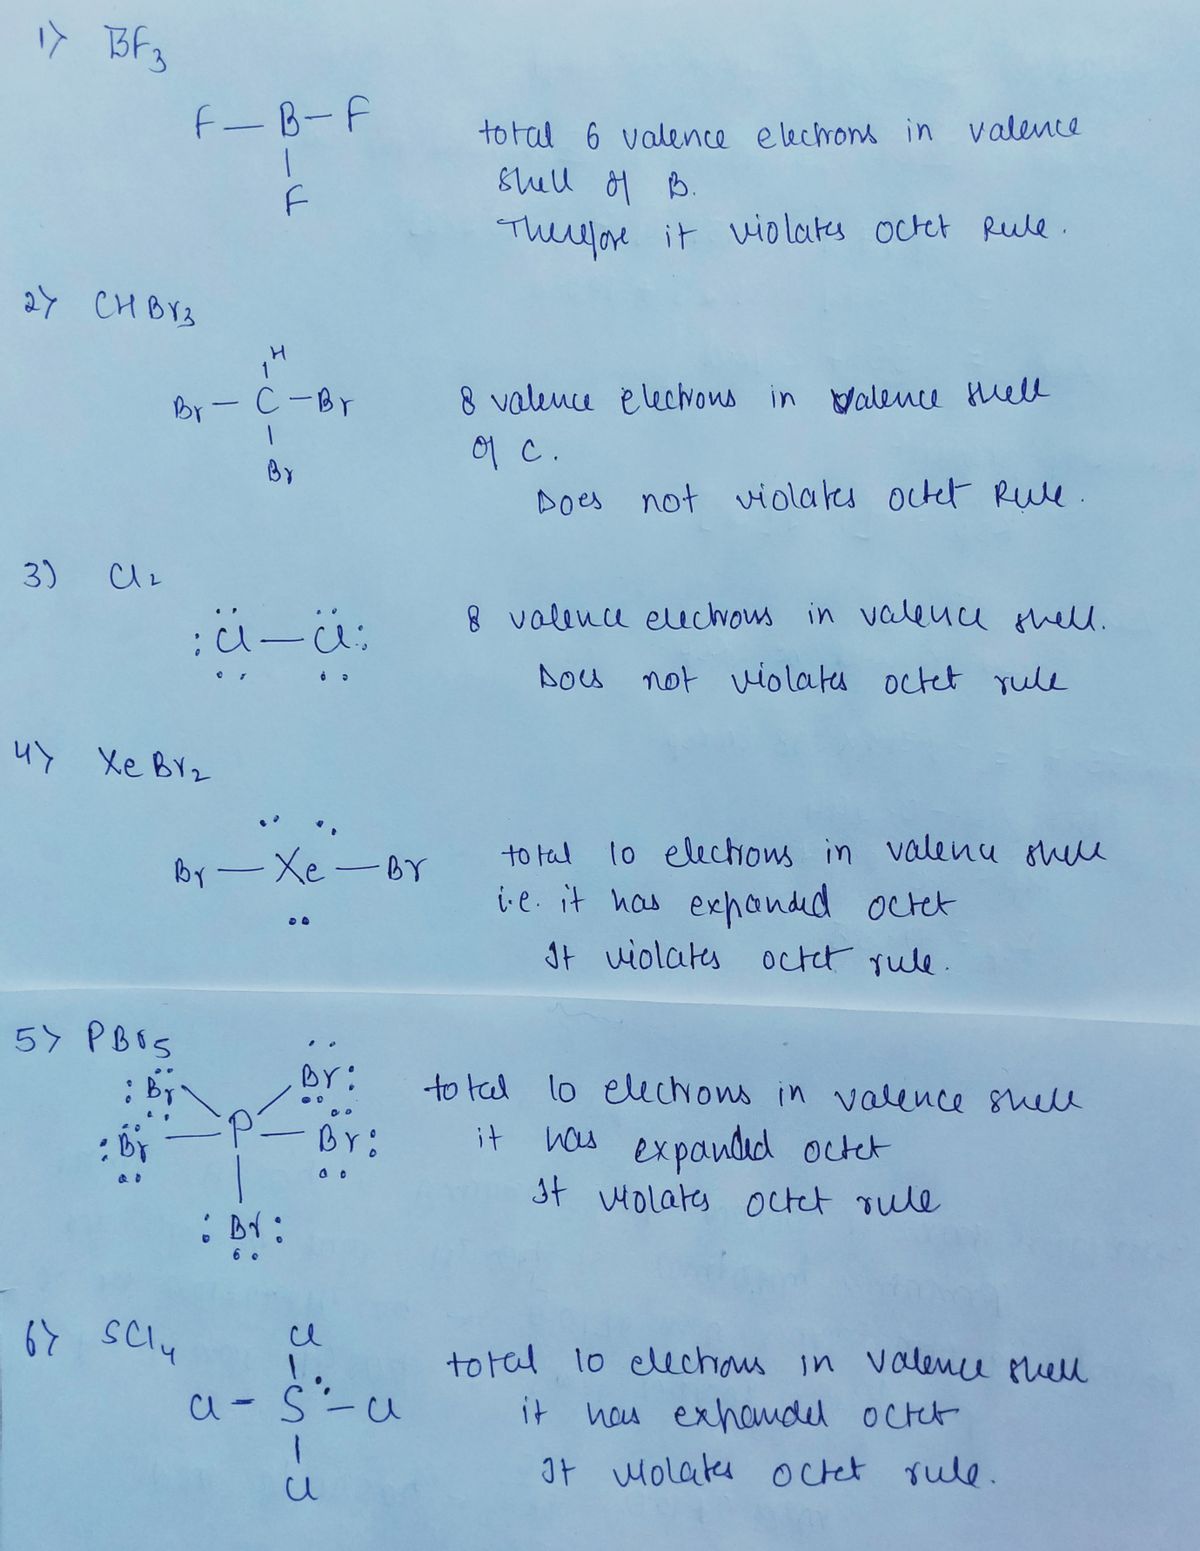 1> BF3
F — B — F
|
F
total 6 valence electrons in valence
shell of B.
Therefore it violates octet Rule.
2> CHBr3
H
|
Br — C — Br
|
Br
8 valence electrons in valence shell
of C.
Does not violates octet Rule.
3) Cl2
:Cl — Cl:
8 valence electrons in valence shell.
Does not violates octet rule
4> XeBr2
Br — Xe — Br
total 10 electrons in valence shell
i.e. it has expanded octet
It violates octet rule.
5> PBr5
:Br Br:
:Br — P — Br:
|
:Br:
total 10 electrons in valence shell
it has expanded octet
It violates octet rule
6> SCl4
Cl
|
Cl - S - Cl
|
Cl
total 10 electrons in valence shell
it has expanded octet
It violates octet rule.